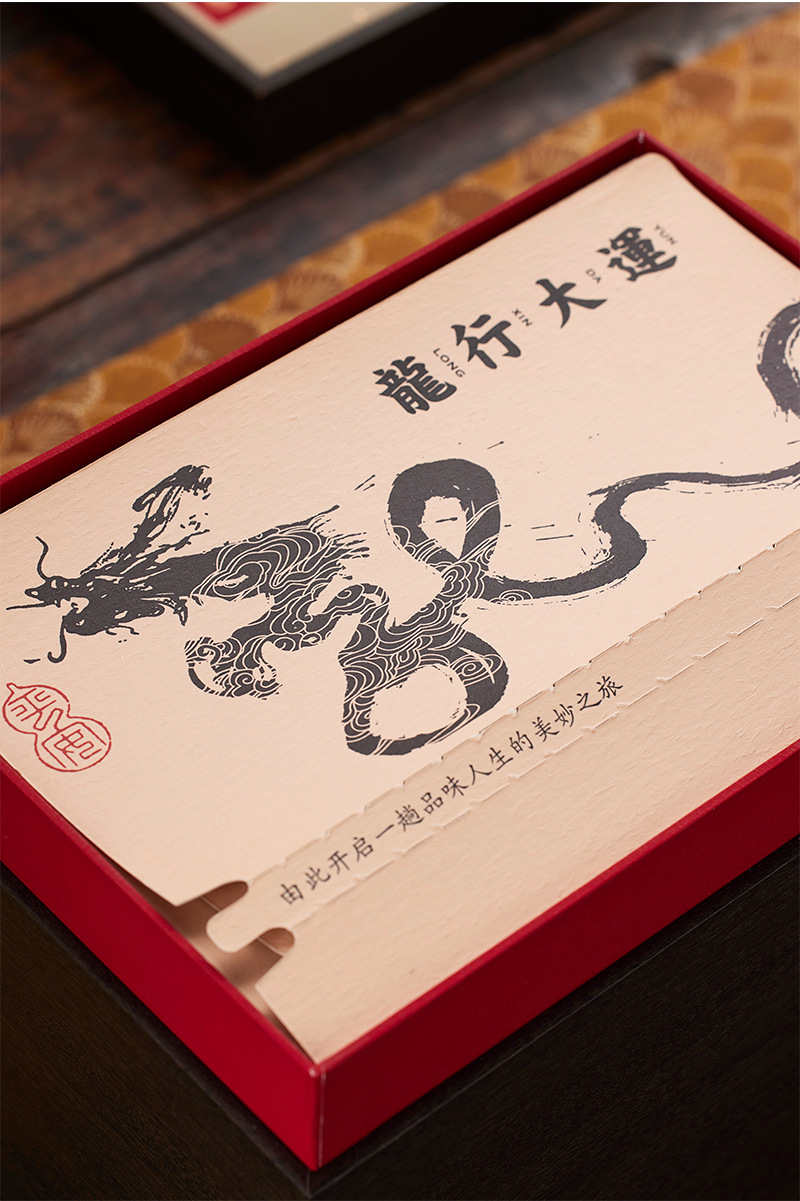 龍行大運
LONG XIN DA YUN
由此开启一趟品味人生的美妙之旅